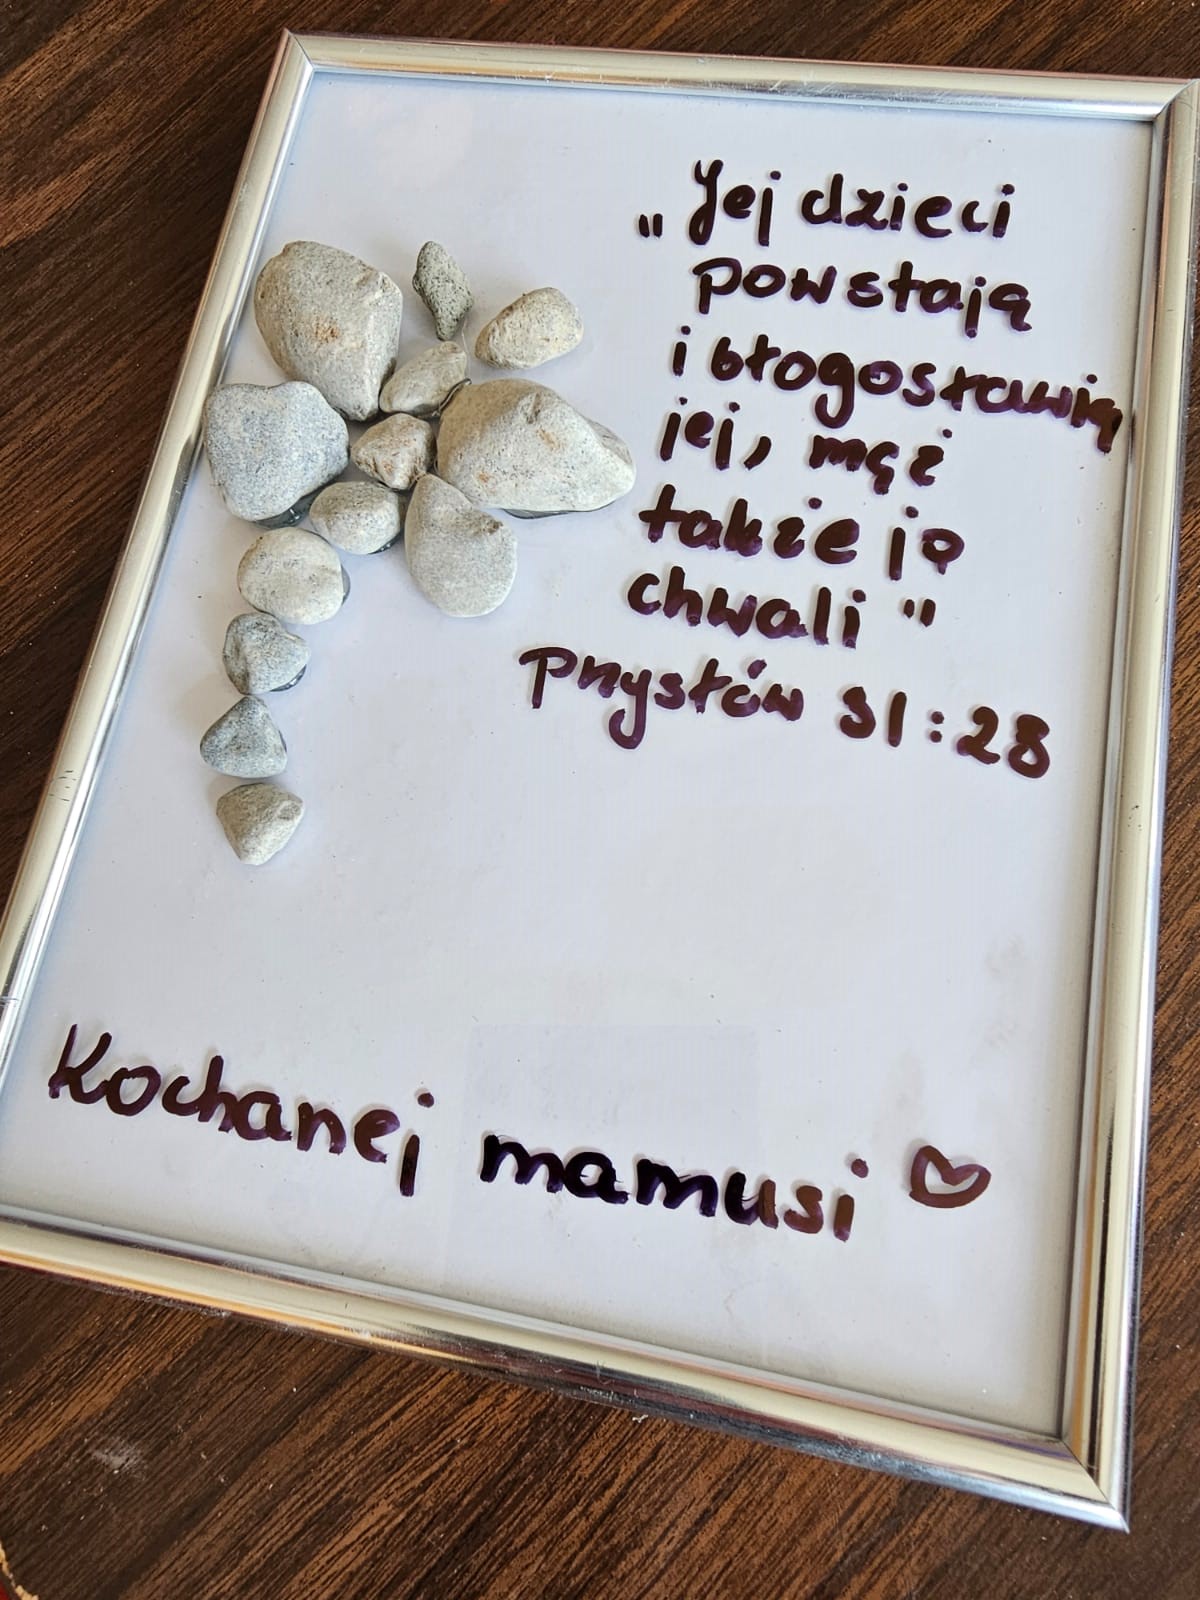 „Jej dzieci
powstają
i błogosławią
jej, mąż
także ją
chwali"
przysłów 31:28
Kochanej mamusi